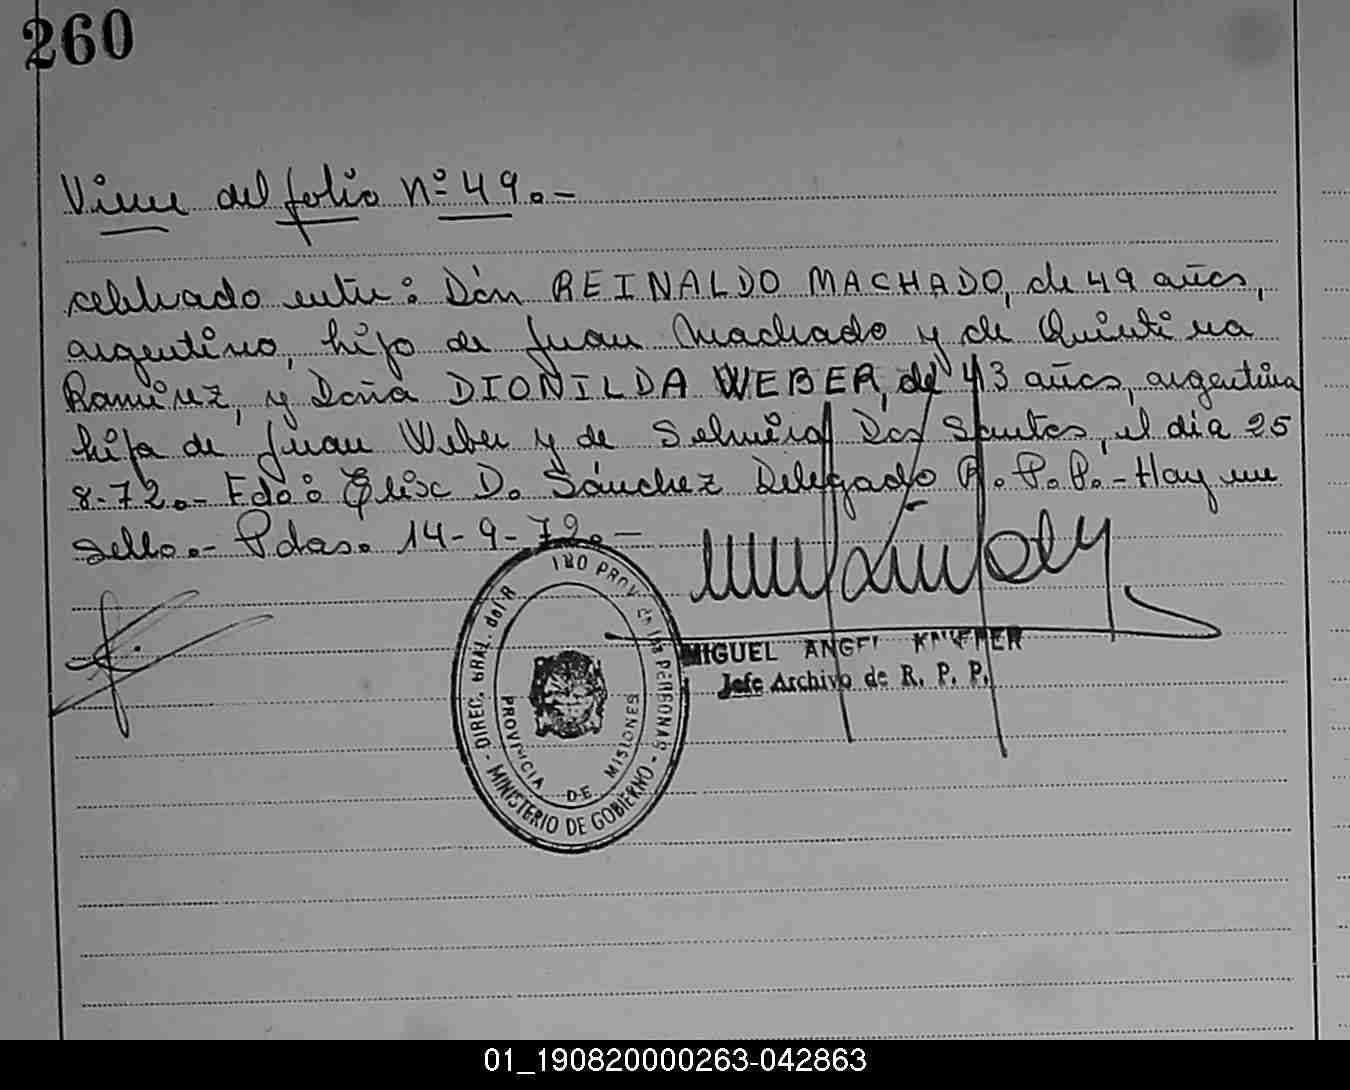 260
Viene del folio Nº 49.-
celebrado entre: Don REINALDO MACHADO, de 49 años,
argentino, hijo de Juan Machado y de Quintina
Ramirez, y Doña DIONILDA WEBER, de 43 años, argentina
hija de Juan Weber y de Selmira Dos Santos, el día 25
8-72.- Fdo: D. Sánchez Delegado R.P.P.- Hay un
sello.- Pdas. 14-9-72.-
MIGUEL ANGEL
Jefe Archivo de R. P. P.
DIREC. GRAL. del R PROV de las PERSONAS
- MINISTERIO DE GOBIERNO -
PROVINCIA DE MISIONES
01_190820000263-042863